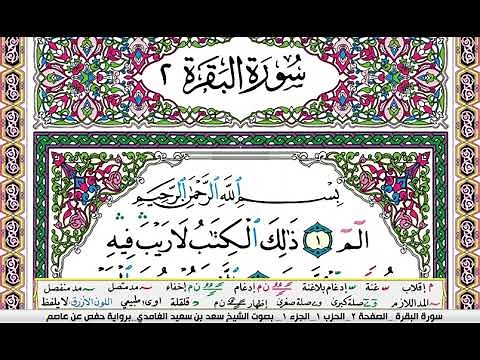 سُورَةُ البَقَرَة ٢
بِسْمِ ٱللَّهِ ٱلرَّحْمَٰنِ ٱلرَّحِيمِ
الٓمٓ ١ ذَٰلِكَ ٱلْكِتَٰبُ لَا رَيْبَ ۛ فِيهِ ۛ
م إقلاب غنة إدغام بلاغنة ن م إدغام ن م إخفاء مد متصل مد منفصل
المد اللازم صلة كبرى صلة صغرى إظهار ن م قلقلة اوى طبيعي اللون الأزرق لا يلفظ
سورة البقرة _ الصفحة 2 _ الحزب 1 _ الجزء 1 _ بصوت الشيخ سعد بن سعيد الغامدي _ برواية حفص عن عاصم